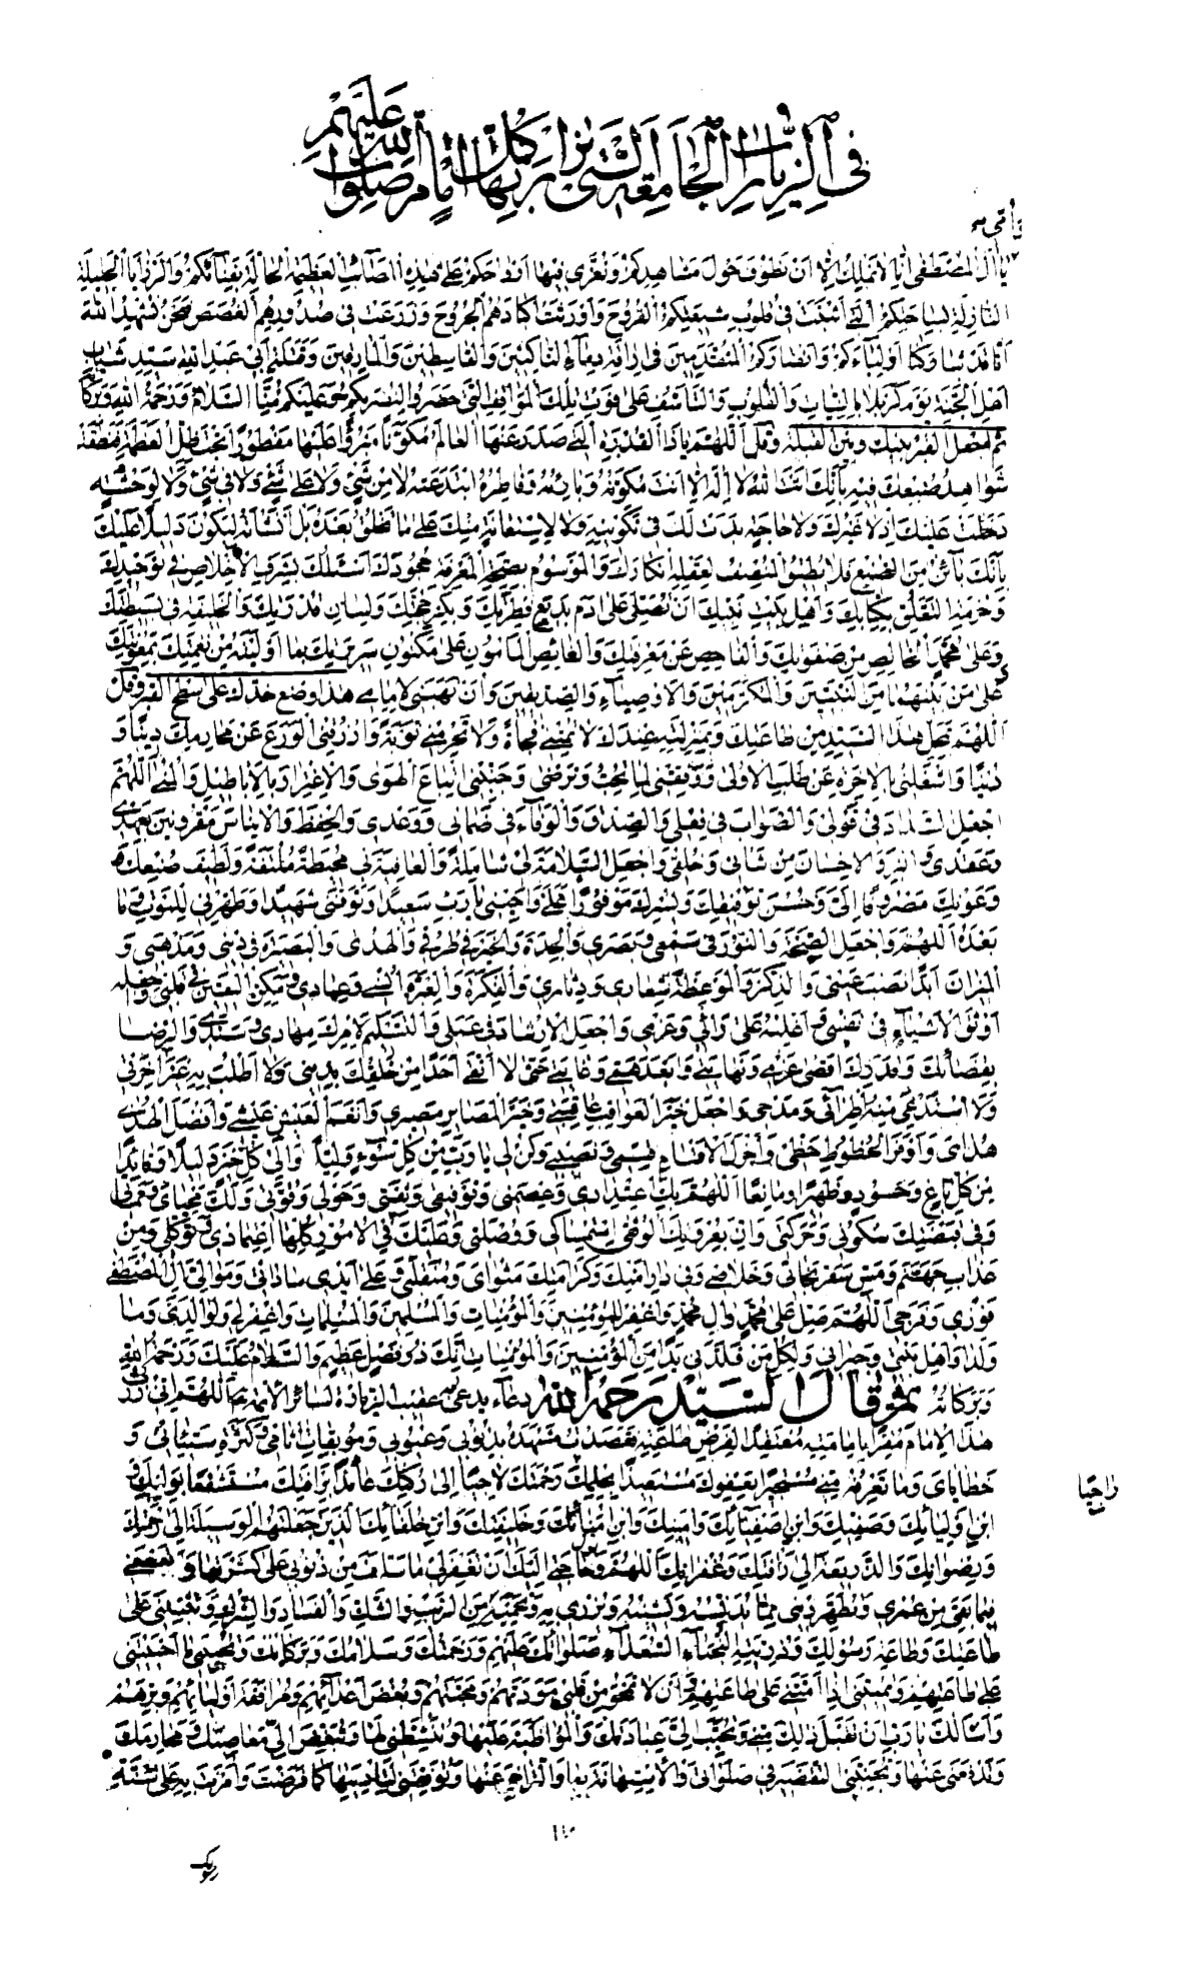 في الزيارات الجامعة التي يزار بها كل إمام صلوات الله عليهم
يا آل المصطفى إنا لا نملك إلا أن نطوف حول مشاهدكم ونعزي فيها أرواحكم على هذه المصائب العظيمة الحالة بفنائكم والرزايا الجليلة
النازلة بساحتكم التي أثبتت في قلوب شيعتكم القروح وأورثت أكبادهم الجروح وزرعت في صدورهم الغصص فنحن نشهد الله
أنا قد شاركنا أولياءكم وأنصاركم المتقدمين في إراقة دماء الناكثين والقاسطين والمارقين وقتلة أبي عبد الله سيد شباب
أهل الجنة يوم كربلاء بالنيات والقلوب والتأسف على فوت تلك المواقف التي حضروا لنصرتكم وعليكم منا السلام ورحمة الله وبركاته
ثم اجعل القبر بينك وبين القبلة وقل اللهم يا ذا القدرة التي صدر عنها العالم مكونا مبروءا عليها مفطورا تحت ظل العظمة فنطقت
شواهد صنعك فيه بأنك أنت الله لا إله إلا أنت مكونه وبارئه وفاطره ابتدعته لا من شيء ولا على شيء ولا في شيء ولا لوحشة
دخلت عليك إذ لا غيرك ولا حاجة بدت لك في تكوينه ولا لاستعانة منك على ما تخلق بعده بل أنشأته ليكون دليلا عليك
بأنك بائن من الصنع فلا يطيق المنصف لعقله إنكارك والموسوم بصحة المعرفة جحودك أسألك بشرف الإخلاص في توحيدك
وحرمة التعلق بكتابك وأهل بيت نبيك أن تصلي على آدم بديع فطرتك وبكر حجتك ولسان قدرتك والخليفة في بسيطتك
وعلى محمد الخالص من صفوتك والفاحص عن معرفتك والغائص المأمون على مكنون سريرتك بما أوليته من نعمتك بمعونتك
وعلى من بينهما من النبيين والمكرمين والأوصياء والصديقين وأن تهبني لإمامي هذا وضع خدك على سطح القبر وقل
اللهم بمحل هذا السيد من طاعتك وبمنزلته عندك لا تمتني فجأة ولا تحرمني توبة وارزقني الورع عن محارمك دينا و
دنيا واشغلني بالآخرة عن طلب الأولى ووفقني لما تحب وترضى وجنبني اتباع الهوى والاغترار بالأباطيل والمنى اللهم
اجعل السداد في قولي والصواب في فعلي والصدق والوفاء في ضماني ووعدي والحفظ والإيناس مقرونين بعهدي
وعقدي والبر والإحسان من شأني وخلقي واجعل السلامة لي شاملة والعافية بي محيطة ملتفة ولطيف صنعك
وعونك مصروفا إلي وحسن توفيقك ويسرك موفورا علي وأحيني يا رب سعيدا وتوفني شهيدا وطهرني للموت وما
بعده اللهم واجعل الصحة والنور في سمعي وبصري والجدة والخير في طرقي والهدى والبصيرة في ديني ومذهبي و
الميزان أبدا نصب عيني والذكر والموعظة شعاري ودثاري والفكرة والعبرة أنسي وعمادي ومكن اليقين في قلبي واجعله
أوثق الأشياء في نفسي واغلبه على رأيي وعزمي واجعل الإرشاد في عملي والتسليم لأمرك مهادي وسندي والرضا
بقضائك وقدرك أقصى عزمي ونهايتي وأبعد همي وغايتي حتى لا أتقي أحدا من خلقك بديني ولا أطلب به غير آخرتي
ولا أستدعي منه إطرائي ومدحي واجعل خير العواقب عاقبتي وخير المصاير مصيري وأنعم العيش عيشي وأفضل الهدى
هداي وأوفر الحظوظ حظي وأجزل الأقسام قسمي ونصيبي وكن لي يا رب من كل سوء وليا وإلى كل خير دليلا وقائدا
من كل باغ وحسود ظهيرا ومانعا اللهم بك اعتدادي وعصمتي وثقتي وتوفيقي وحولي وقوتي ولك محياي ومماتي
وفي قبضتك سكوني وحركتي وإن بعروتك الوثقى استمساكي ووصلتي وعليك في الأمور كلها اعتمادي وتوكلي ومن
عذاب جهنم ومس سقر نجاتي وخلاصي وفي دار أمنك وكرامتك مثواي ومنقلبي وعلى أيدي ساداتي وموالي آل المصطفى
فوزي وفرجي اللهم صل على محمد وآل محمد واغفر للمؤمنين والمؤمنات والمسلمين والمسلمات واغفر لي ولوالدي وما
ولدا وأهل بيتي وجيراني ولكل من قلدني يدا من المؤمنين والمؤمنات إنك ذو فضل عظيم والسلام عليك ورحمة الله
وبركاته ثم قال السيد رحمه الله دعاء يدعى به عقيب الزيارة لسائر الأئمة اللهم إني زرت
هذا الإمام مقرا بإمامته معتقدا لفرض طاعته فقصدت مشهده بذنوبي وعيوبي وموبقات آثامي وكثرة سيئاتي و
خطاياي وما تعرفه مني مستجيرا بعفوك مستعيذا بحلمك رحمتك لاجئا إلى ركنك عائذا برأفتك مستشفعا بوليك و
ابن أوليائك وصفيك وابن أصفيائك وأمينك وابن أمنائك وخليفتك وابن خلفائك الذين جعلتهم الوسيلة إلى رحمتك
ورضوانك والذريعة إلى رأفتك وغفرانك اللهم وحاجتي إليك أن تغفر لي ما سلف من ذنوبي على كثرتها وتعصمني
فيما بقي من عمري وتطهر ديني مما يدنسه ويشينه ويزري به وتحميه من الريب والشك والفساد والشرك وتثبتني على
طاعتك وطاعة رسولك وذريته النجباء السعداء صلواتك عليهم ورحمتك وسلامك وبركاتك وتحييني ما أحييتني
على طاعتهم وتميتني إذا أمتني على طاعتهم وأن لا تمحو من قلبي مودتهم ومحبتهم وبغض أعدائهم ومرافقة أوليائهم وبرهم
وأسألك يا رب أن تقبل ذلك مني وتحبب إلي عبادتك والمواظبة عليها وتنشطني لها وتبغض إلي معاصيك ومحارمك
وتدفعني عنها وتجنبني التقصير في صلواتي والاستهانة بها والتراخي عنها وتوفقني لتأديتها كما فرضت وأمرت به على سنة
راجيا
١٤٠
رسولك